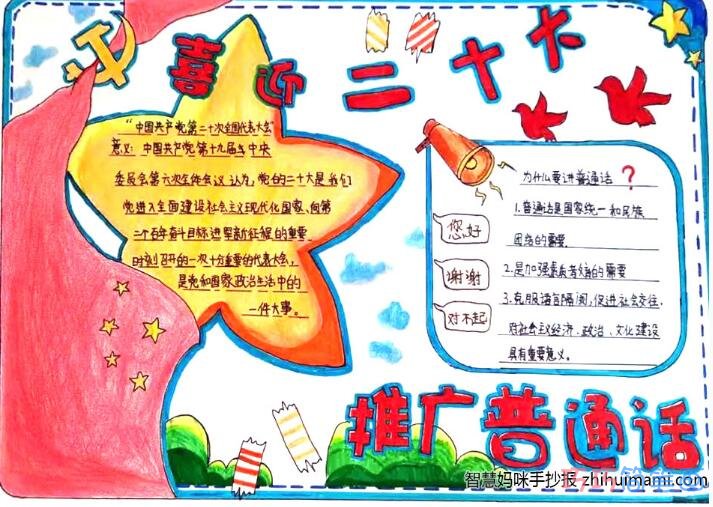 喜迎二十大
"中国共产党第二十次全国代表大会"
意义：中国共产党第十九届中央
委员会第六次全体会议认为，党的二十大是我们
党进入全面建设社会主义现代化国家、向第
二个百年奋斗目标进军新征程的重要
时刻召开的一次十分重要的代表大会，
是党和国家政治生活中的
一件大事。
为什么要讲普通话？
1.普通话是国家统一和民族
团结的需要
2.是加强素质教育的需要
3.克服语言隔阂，促进社会交往，
对社会主义经济、政治、文化建设
具有重要意义。
您好
谢谢
对不起
推广普通话
智慧妈咪手抄报 zhihuimami.com